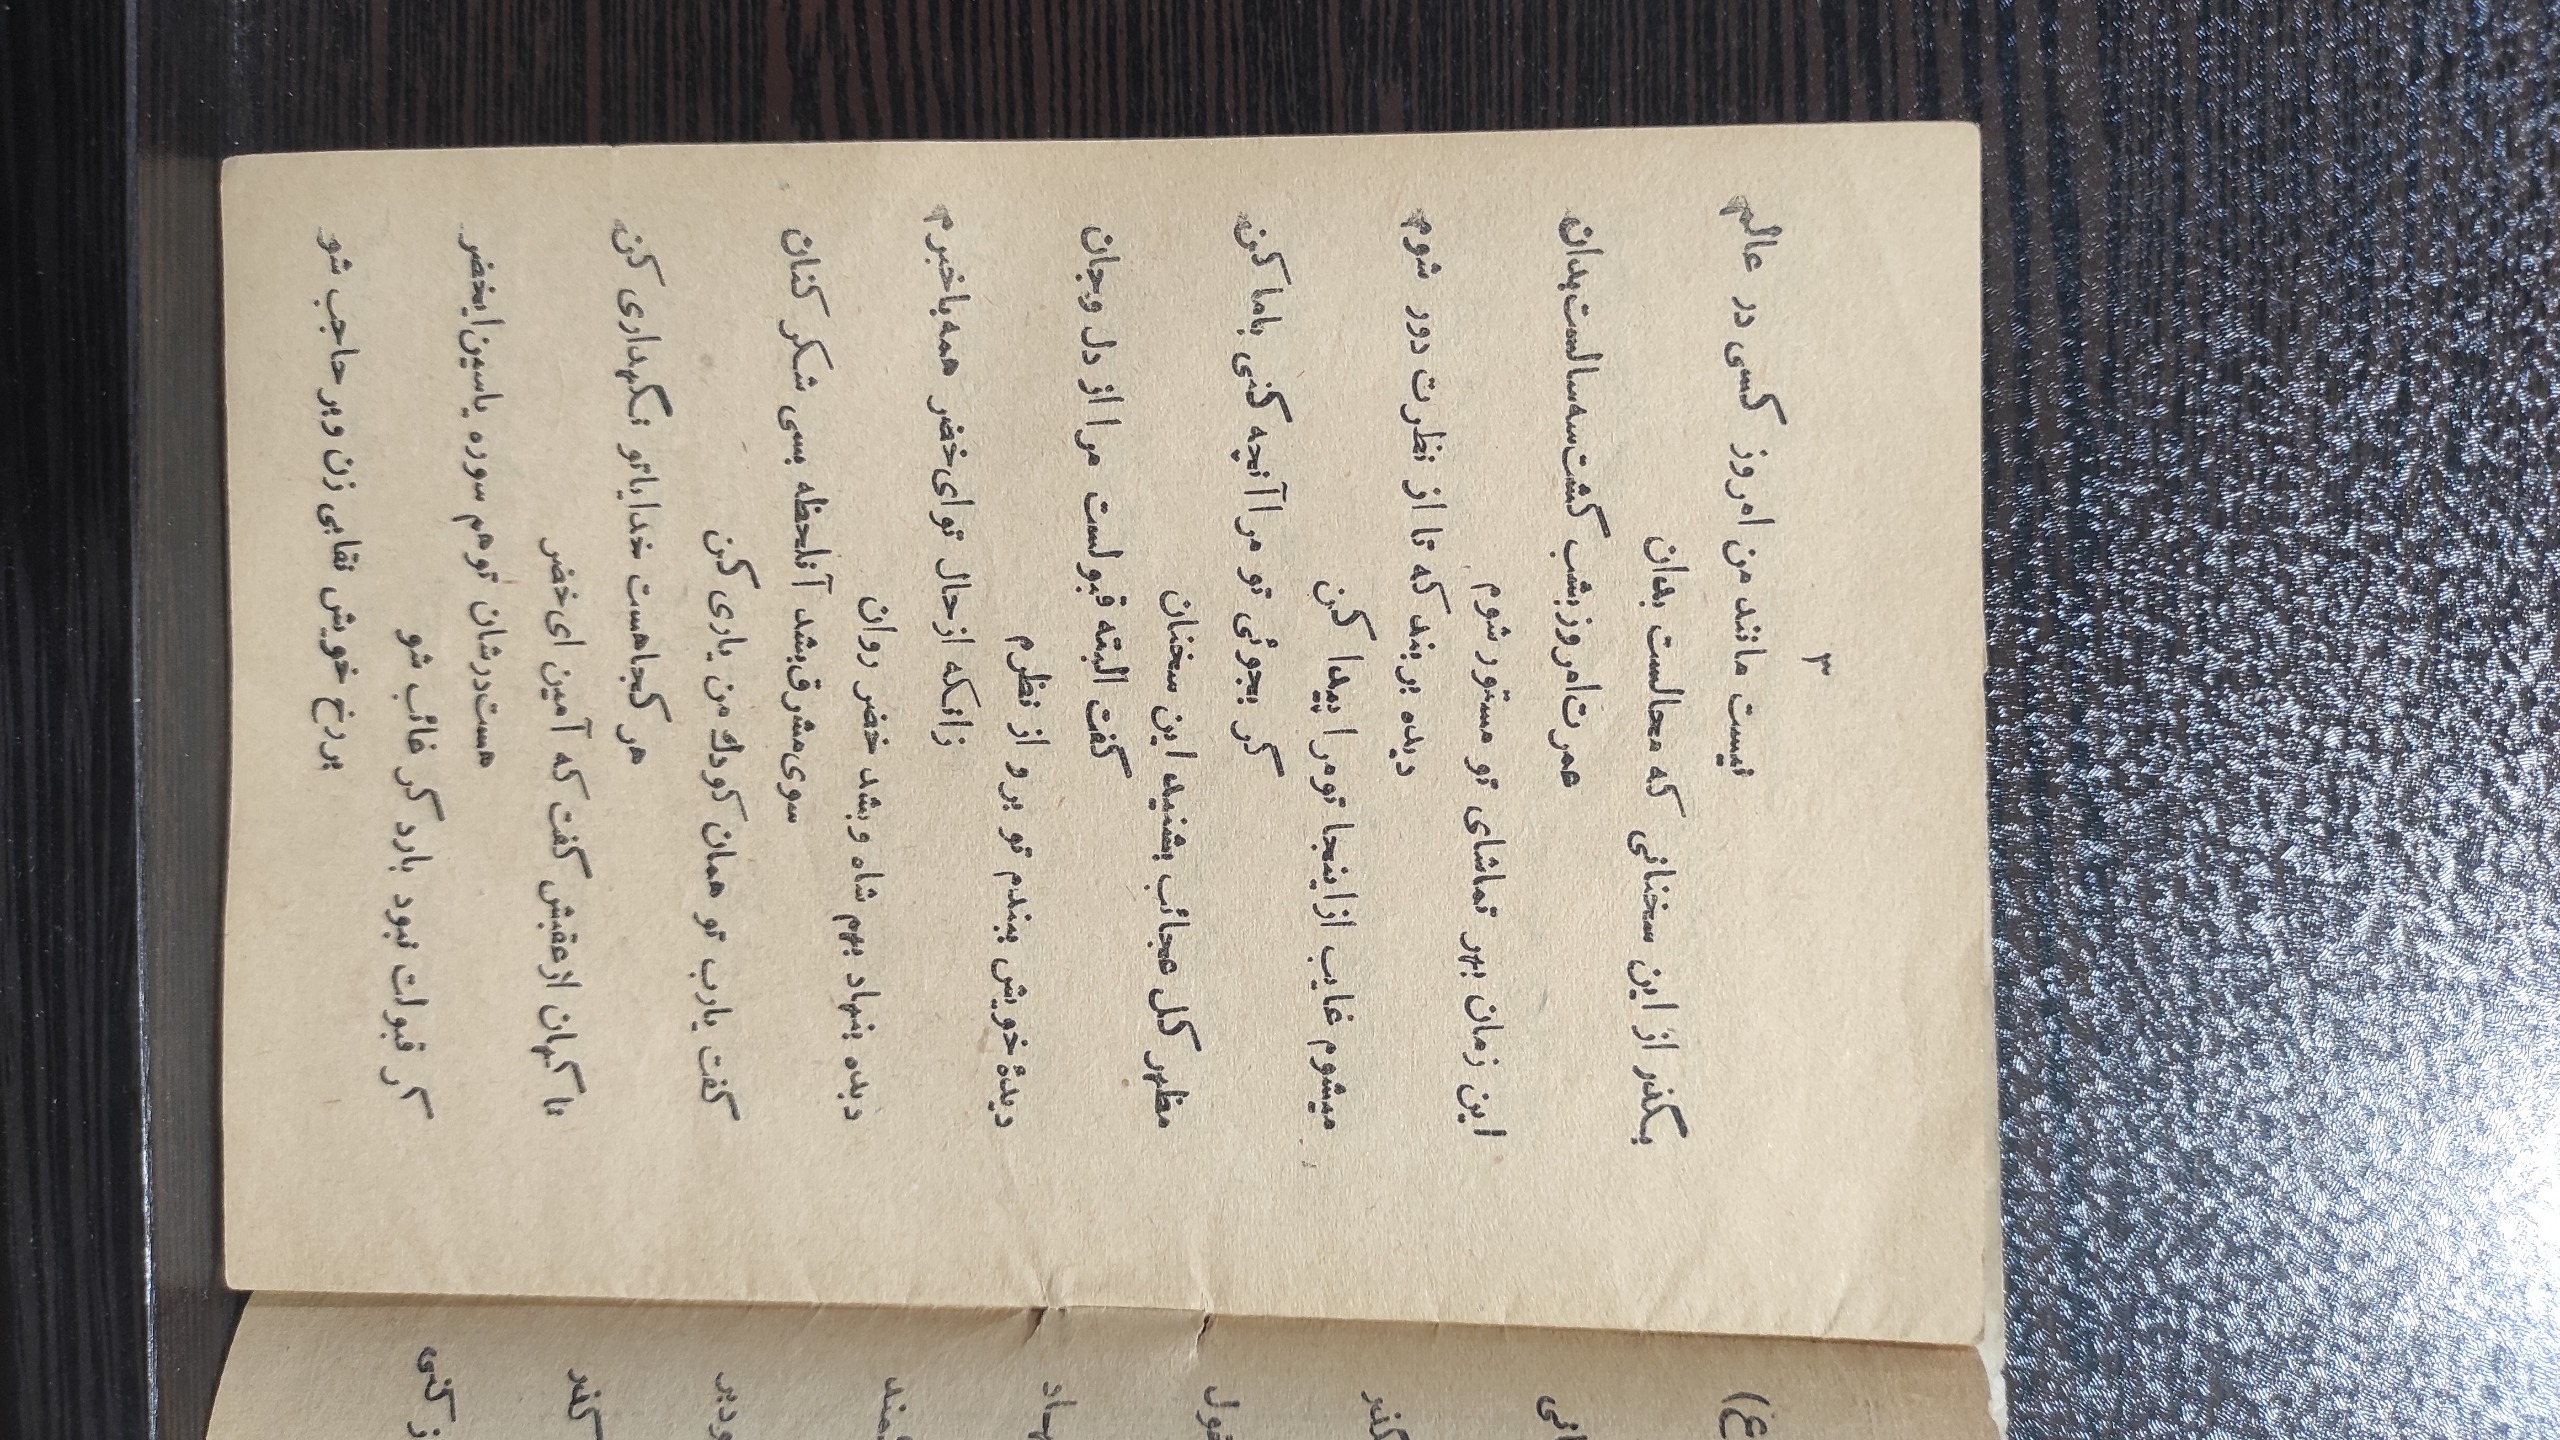 ۳
نیست مانند من امروز کسی در عالم
بگذر از این سخنانی که محالست بدان
عمرت امروز بشب گشت سه سالست بدان
این زمان بهر تماشای تو مستور شوم
دیده بربند که تا از نظرت دور شوم
میشوم غایب ازاینجا تومرا پیدا کن
گر بجوئی تو مرا آنچه کنی باما کن
مظهر کل عجائب بشنید این سخنان
گفت البته قبولست مرا از دل وجان
دیدهٔ خویش ببندم تو برو از نظرم
زانکه ازحال توای خضر همه باخبرم
دیده بنهاد بهم شاه وبشد خضر روان
سوی مشرق بشد آنلحظه بسی شکر کنان
گفت یارب تو همان کودك من یاری کن
هر کجاهست خدایاتو نگهداری کن
ناگهان ازعقبش گفت که آمین ای خضر
هست درشان توهم سوره یاسین ایخضر
گر قبولت نبود بارد گر غائب شو
بر رخ خویش نقابی زن وبر حاجب شو
(ع)
گذر
قول
هاد
مند
ودبر
گذر
ز کنی